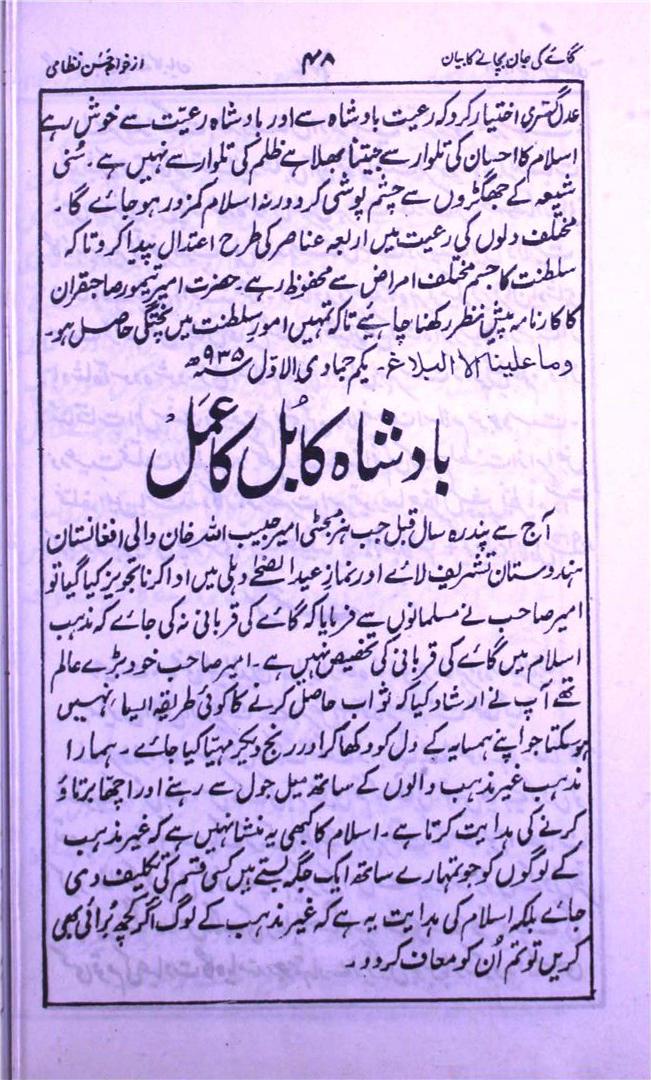 گائے کی جان بچانے کا بیان ۴۸ از خواجہ حسن نظامی
عدل گستری اختیار کرو کہ رعیت بادشاہ سے اور بادشاہ رعیت سے خوش رہے
اسلام کا احسان کی تلوار سے جیتنا بھلا ہے ظلم کی تلوار سے نہیں ہے۔ سُنی
شیعہ کے جھگڑوں سے چشم پوشی کرو ورنہ اسلام کمزور ہو جائے گا۔
مختلف دلوں کی رعیت میں اربعہ عناصر کی طرح اعتدال پیدا کرو تا کہ
سلطنت کا جسم مختلف امراض سے محفوظ رہے۔ حضرت امیر تیمور صاحبقران
کا کارنامہ پیش نظر رکھنا چاہئیے تاکہ تمہیں امور سلطنت میں پختگی حاصل ہو۔
وما علینا الا البلاغ۔ یکم جمادی الاوّل سنہ ۹۳۵ھ
بادشاہ کابُل کا عمَل
آج سے پندرہ سال قبل جب ہز مجسٹی امیر حبیب اللہ خان والی افغانستان
ہندوستان تشریف لائے اور نماز عید الضحےٰ دہلی میں ادا کرنا تجویز کیا گیا تو
امیر صاحب نے مسلمانوں سے فرمایا کہ گائے کی قربانی نہ کی جائے کہ مذہب
اسلام میں گائے کی قربانی کی تخصیص نہیں ہے۔ امیر صاحب خود بڑے عالم
تھے آپ نے ارشاد کیا کہ ثواب حاصل کرنے کا کوئی طریقہ ایسا نہیں
ہوسکتا جو اپنے ہمسایہ کے دل کو دکھا کر اور رنج دیکر مہیّا کیا جائے۔ ہمارا
مذہب غیر مذہب والوں کے ساتھ میل جول سے رہنے اور اچھا برتاؤ
کرنے کی ہدایت کرتا ہے۔ اسلام کا کبھی یہ منشا نہیں ہے کہ غیر مذہب
کے لوگوں کو جو تمہارے ساتھ ایک جگہ بستے ہیں کسی قسم کی تکلیف دی
جائے بلکہ اسلام کی ہدایت یہ ہے کہ غیر مذہب کے لوگ اگر کچھ بُرائی بھی
کریں تو تم اُن کو معاف کر دو۔